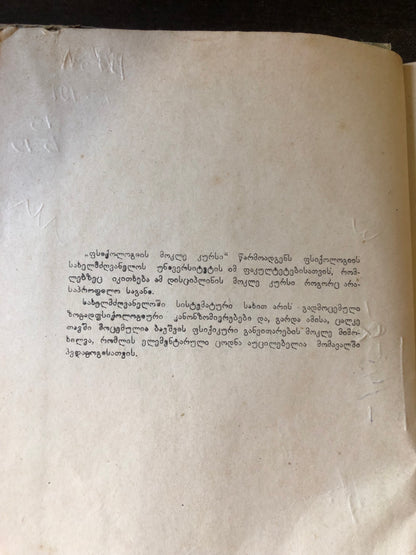 „ფსიქოლოგიის მოკლე კურსი“ წარმოადგენს ფსიქოლოგიის
სახელმძღვანელოს უნივერსიტეტის იმ ფაკულტეტებისათვის, რომ-
ლებზეც იკითხება ამ დისციპლინის მოკლე კურსი როგორც არა-
საპროფილო საგანი.
სახელმძღვანელოში სისტემატური სახით არის გადმოცემული
ზოგადფსიქოლოგიური კანონზომიერებები და, გარდა ამისა, ცალკე
თავში მოცემულია ბავშვის ფსიქიკური განვითარების მოკლე მიმო-
ხილვა, რომლის ელემენტარული ცოდნა აუცილებელია მომავალში
პედაგოგისათვის.